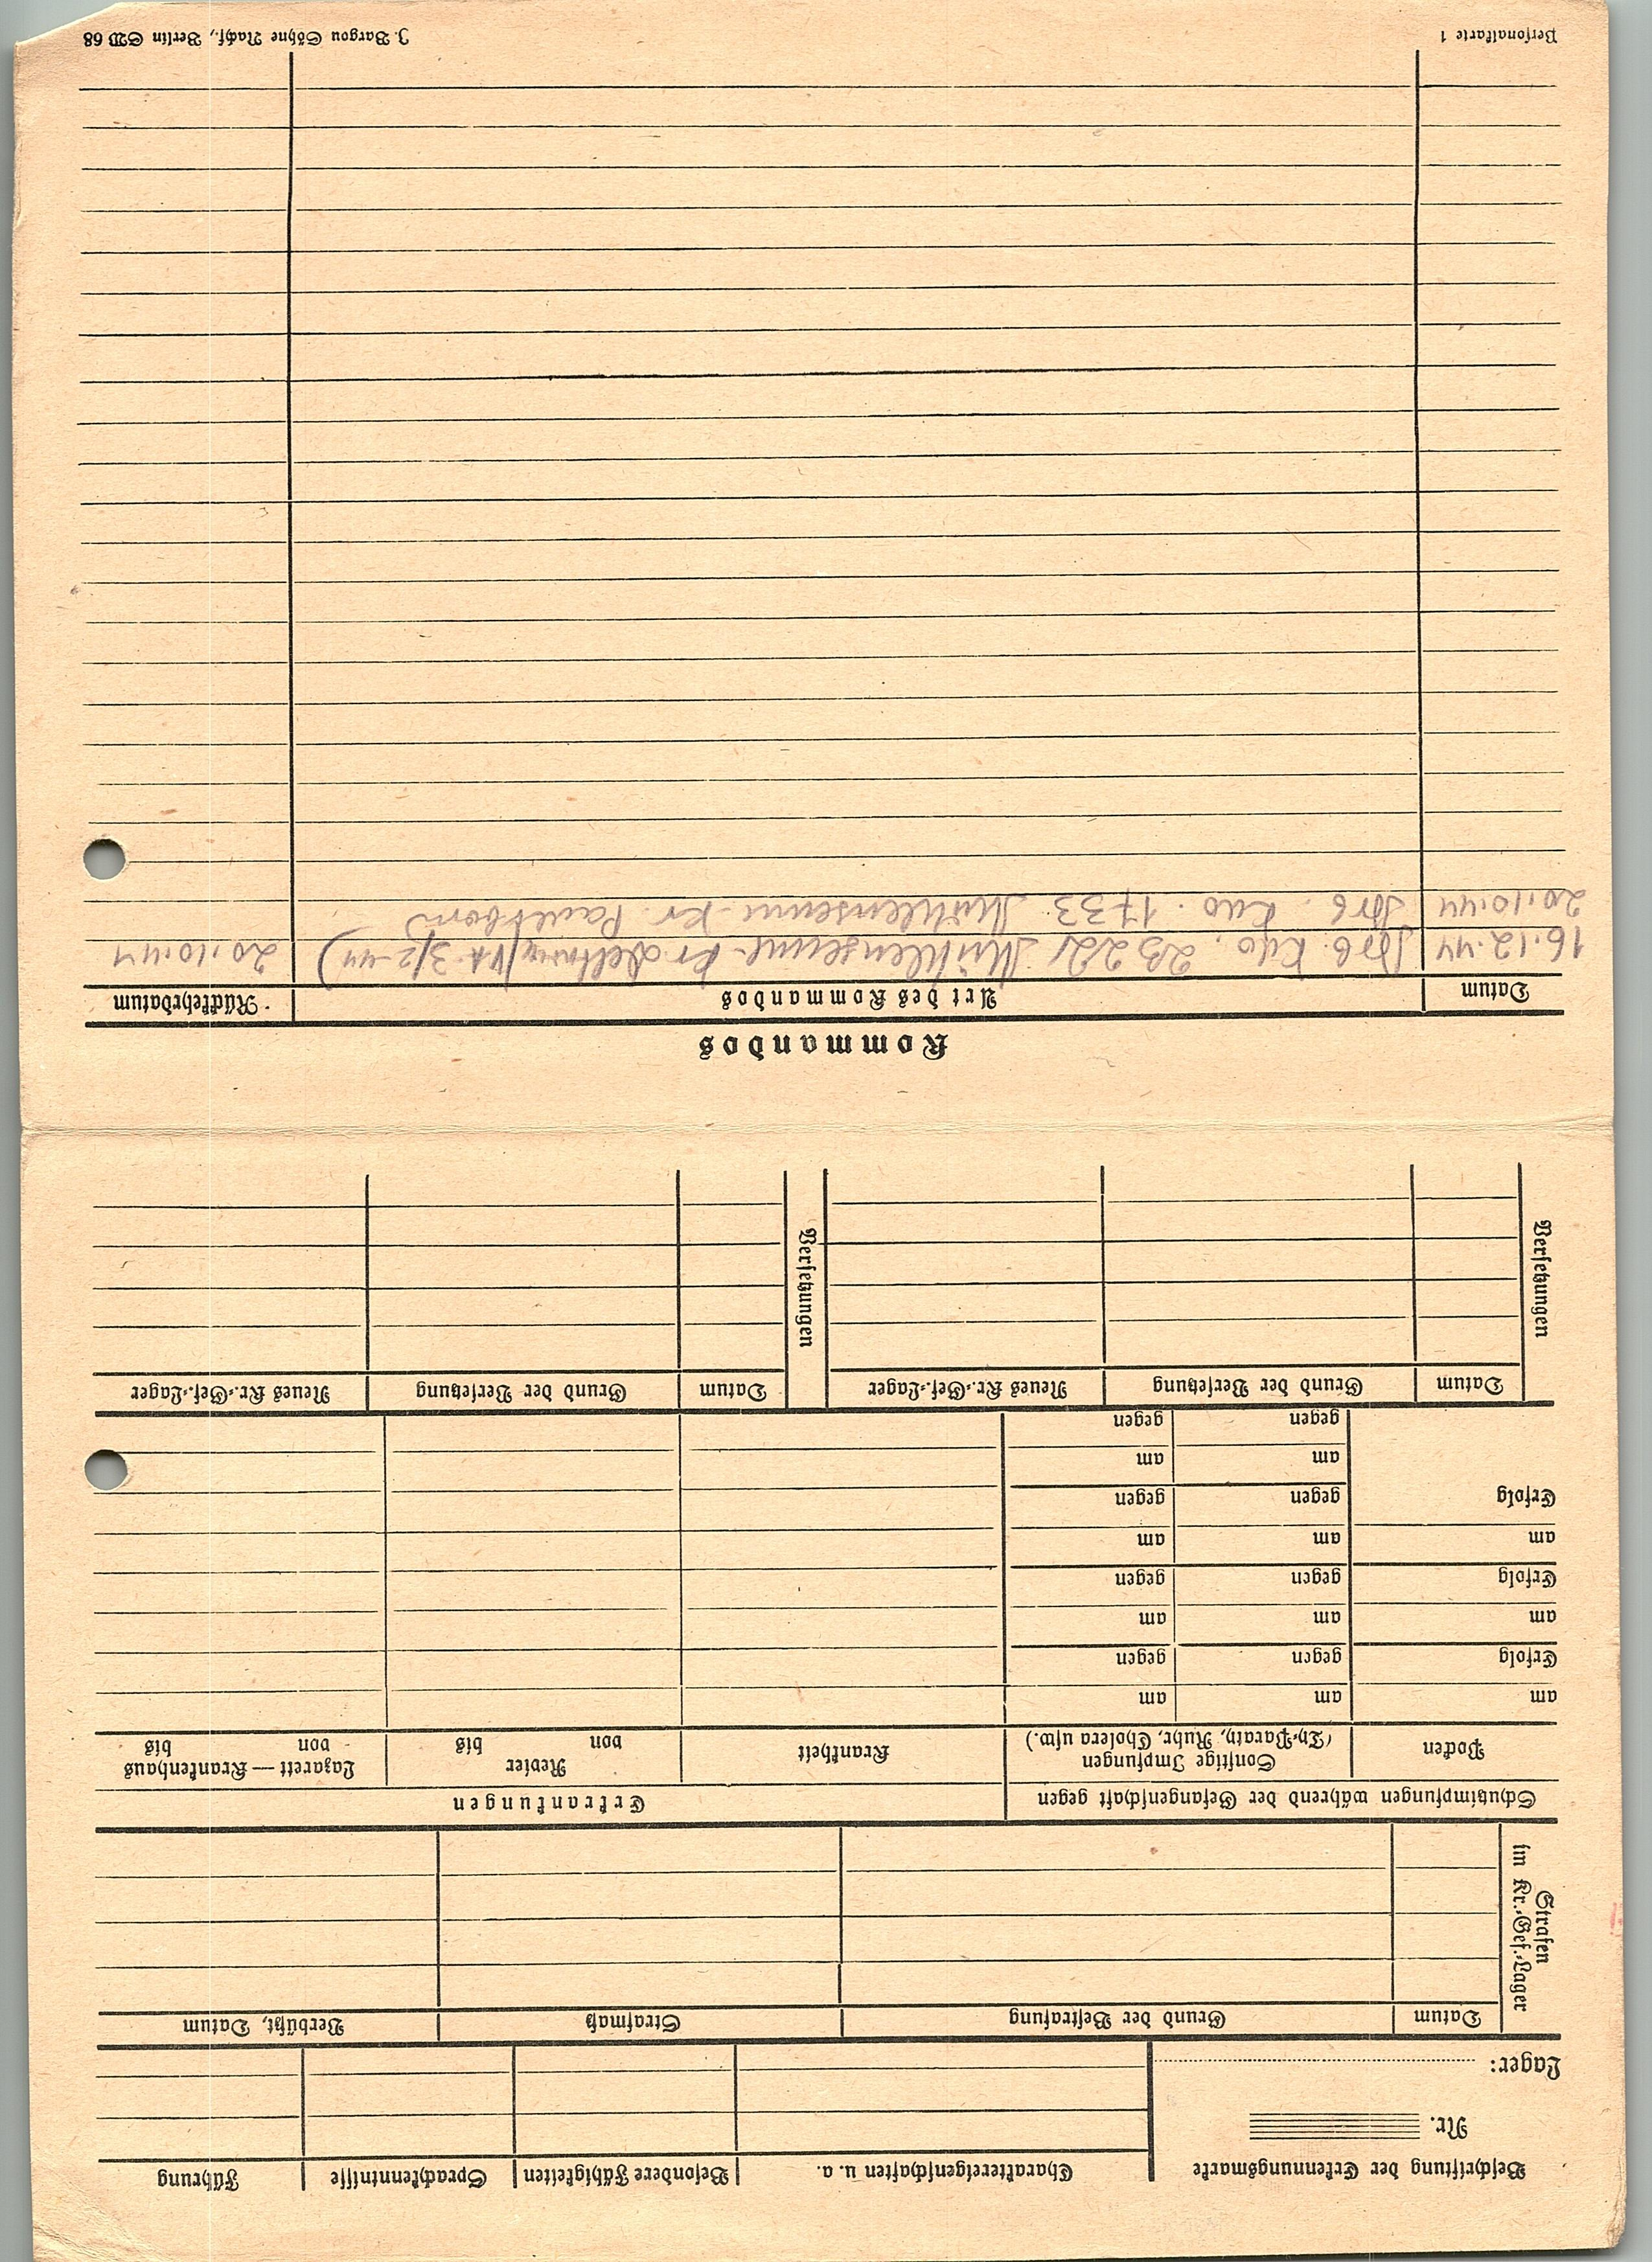 Beschriftung der Erkennungsmarke
Nr.
Lager:
Charaktereigenschaften u. a.
Besondere Fähigkeiten
Sprachkenntnisse
Führung
Strafen
im Kr.-Gef.-Lager
Datum
Grund der Bestrafung
Strafmaß
Verbüßt, Datum
Schutzimpfungen während der Gefangenschaft gegen
Erkrankungen
Pocken
Sonstige Impfungen
(Ty.-Paraty., Ruhr, Cholera usw.)
Krankheit
Revier
von bis
Lazarett — Krankenhaus
von bis
am am am
Erfolg gegen gegen
am am am
Erfolg gegen gegen
am am am
Erfolg gegen gegen
am am
gegen gegen
Versetzungen
Datum
Grund der Versetzung
Neues Kr.-Gef.-Lager
Versetzungen
Datum
Grund der Versetzung
Neues Kr.-Gef.-Lager
Kommandos
Datum
Art des Kommandos
Rückkehrdatum
16.12.44 Kdo. Mühlensenne - Kr. 3/2.44) 20.10.44
20.10.44 Kdo. 1733 Mühlensenne - Kr.
Personalkarte 1
J. Bargou Söhne Nachf., Berlin SW 68